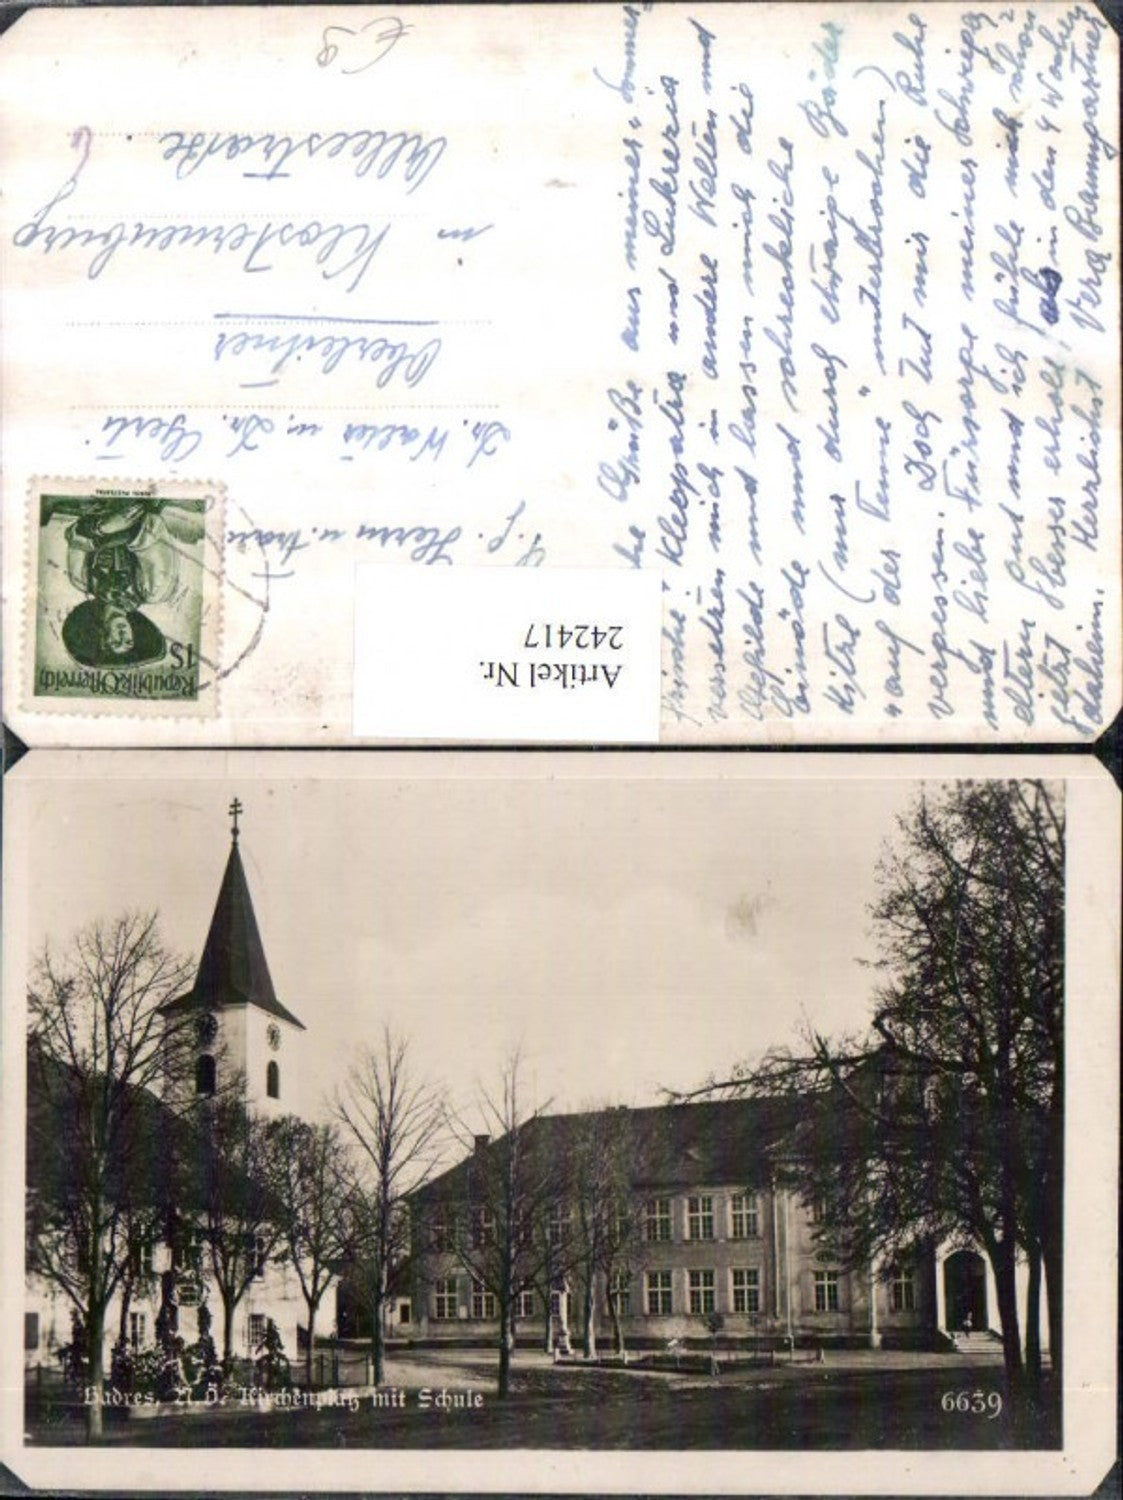 Republik Österreich
1S
V. g. Herrn u. Frau
Dr. Walter u. Dr. Gerti
Oberleitner
in Klosterneuburg
Alleestraße 6
Artikel Nr.
242417
Grüße aus meiner Sommer=
frische! Kleopatra und Lukrezia
versetzen mich in andere Welten und
Gefilde und lassen mich die
Einöde und schreckliche
Hitze (nur durch etwaige Bäder
"auf der Tenne" unterbrochen)
vergessen. Doch tut mir die Ruhe
und liebe Fürsorge meiner Schwieger=
eltern gut und ich fühle mich schon
jetzt besser erholt, als in den 4 Wochen
daheim. Herzlichst Vera Baumgartner
Hadres, N.Ö. Kirchenplatz mit Schule
6639